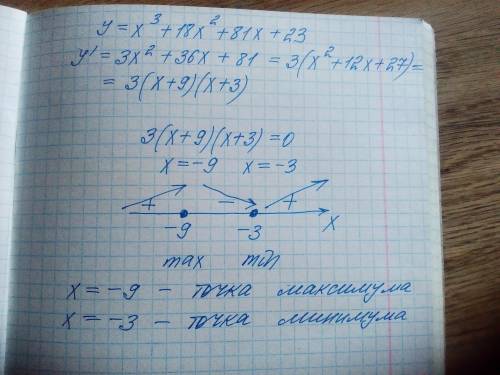 y = x³ + 18x² + 81x + 23
y' = 3x² + 36x + 81 = 3(x² + 12x + 27) =
= 3(x+9)(x+3)
3(x+9)(x+3) = 0
x = -9 x = -3
+ - +
-9 -3 x
max min
x = -9 - точка максимума
x = -3 - точка минимума